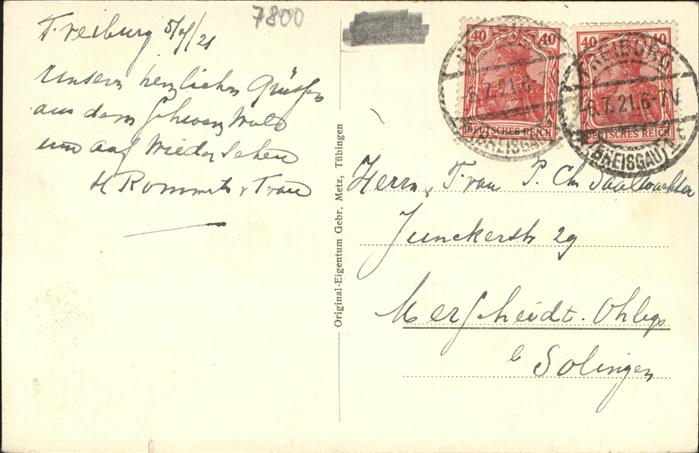 7800
Freiburg 5/7/21
Unsern herzlichen Grüssen
aus dem Schwarz Wald
und auf Wieder Sehen
H Rommets & Frau
Original-Eigentum Gebr. Metz, Tübingen
40 40
DEUTSCHES REICH
FREIBURG
6.7.21.6-7V
(BREISGAU)
40 40
DEUTSCHES REICH
FREIBURG
6.7.21.6-7V
(BREISGAU)
Herrn & Frau P. Chr Saalwächter
Junckerstr 29
Merscheidt-Ohligs
b Solingen